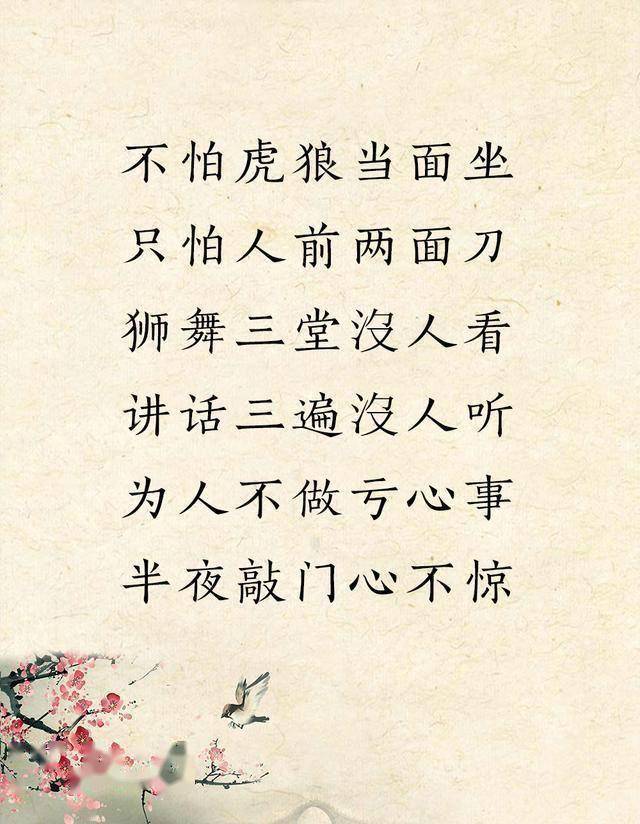 不怕虎狼当面坐
只怕人前两面刀
狮舞三堂沒人看
讲话三遍沒人听
为人不做亏心事
半夜敲门心不惊